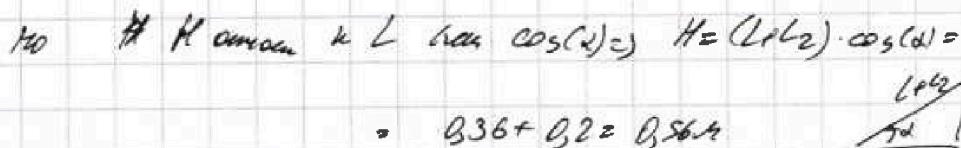 но H относ к L как cos(α) => H = (L+L2)·cos(α) =
= 0,36 + 0,2 = 0,56 м
L+L2
α